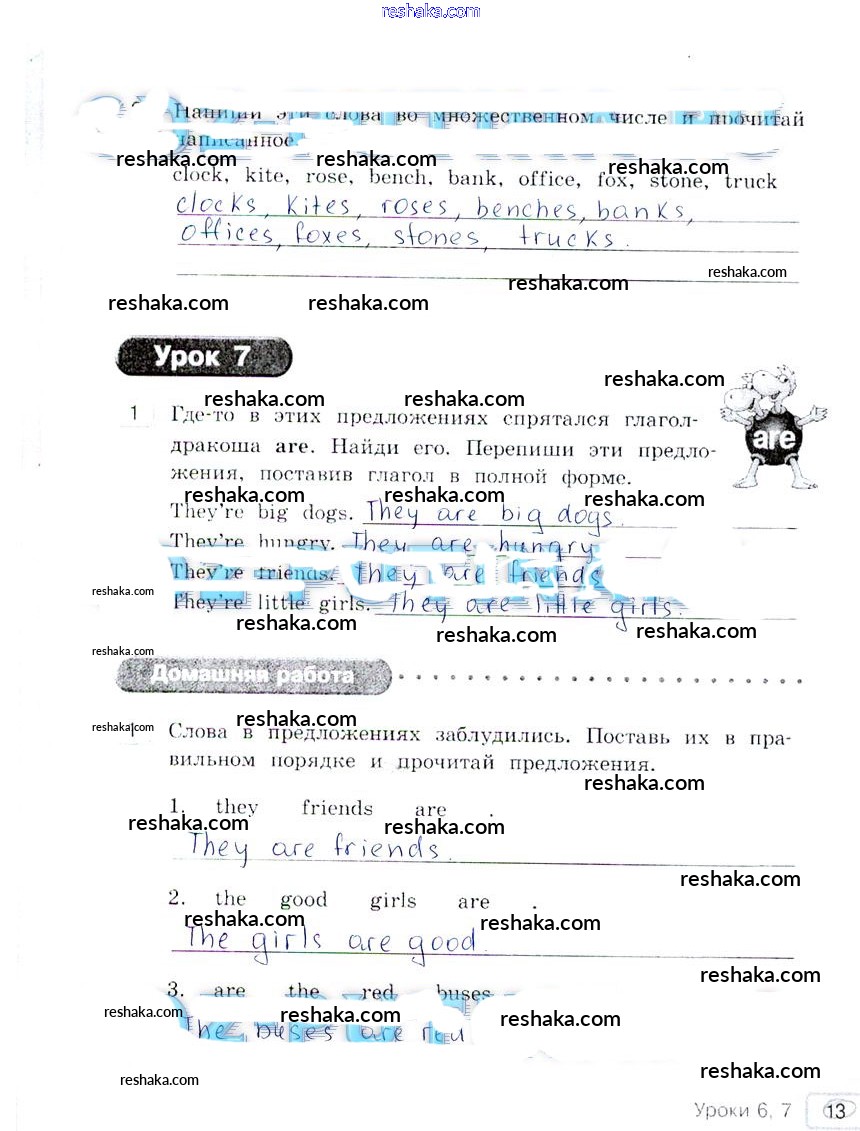 reshaka.com
Напиши эти слова во множественном числе и прочитай
написанное.
reshaka.com reshaka.com reshaka.com
clock, kite, rose, bench, bank, office, fox, stone, truck
clocks, kites, roses, benches, banks,
offices, foxes, stones, trucks.
reshaka.com reshaka.com
reshaka.com reshaka.com
Урок 7
reshaka.com
reshaka.com reshaka.com
1 Где-то в этих предложениях спрятался глагол-
дракоша are. Найди его. Перепиши эти предло-
жения, поставив глагол в полной форме.
are
reshaka.com reshaka.com reshaka.com
They're big dogs. They are big dogs.
They're hungry. They are hungry
They're friends. They are friends
reshaka.com
They're little girls. They are little girls.
reshaka.com reshaka.com reshaka.com
reshaka.com
Домашняя работа
reshaka.com reshaka.com
1 Слова в предложениях заблудились. Поставь их в пра-
вильном порядке и прочитай предложения.
reshaka.com
1. they friends are .
reshaka.com reshaka.com
They are friends.
reshaka.com
2. the good girls are .
reshaka.com reshaka.com
The girls are good.
reshaka.com
3. are the red buses
reshaka.com reshaka.com reshaka.com
The buses are red
reshaka.com reshaka.com
Уроки 6, 7 13